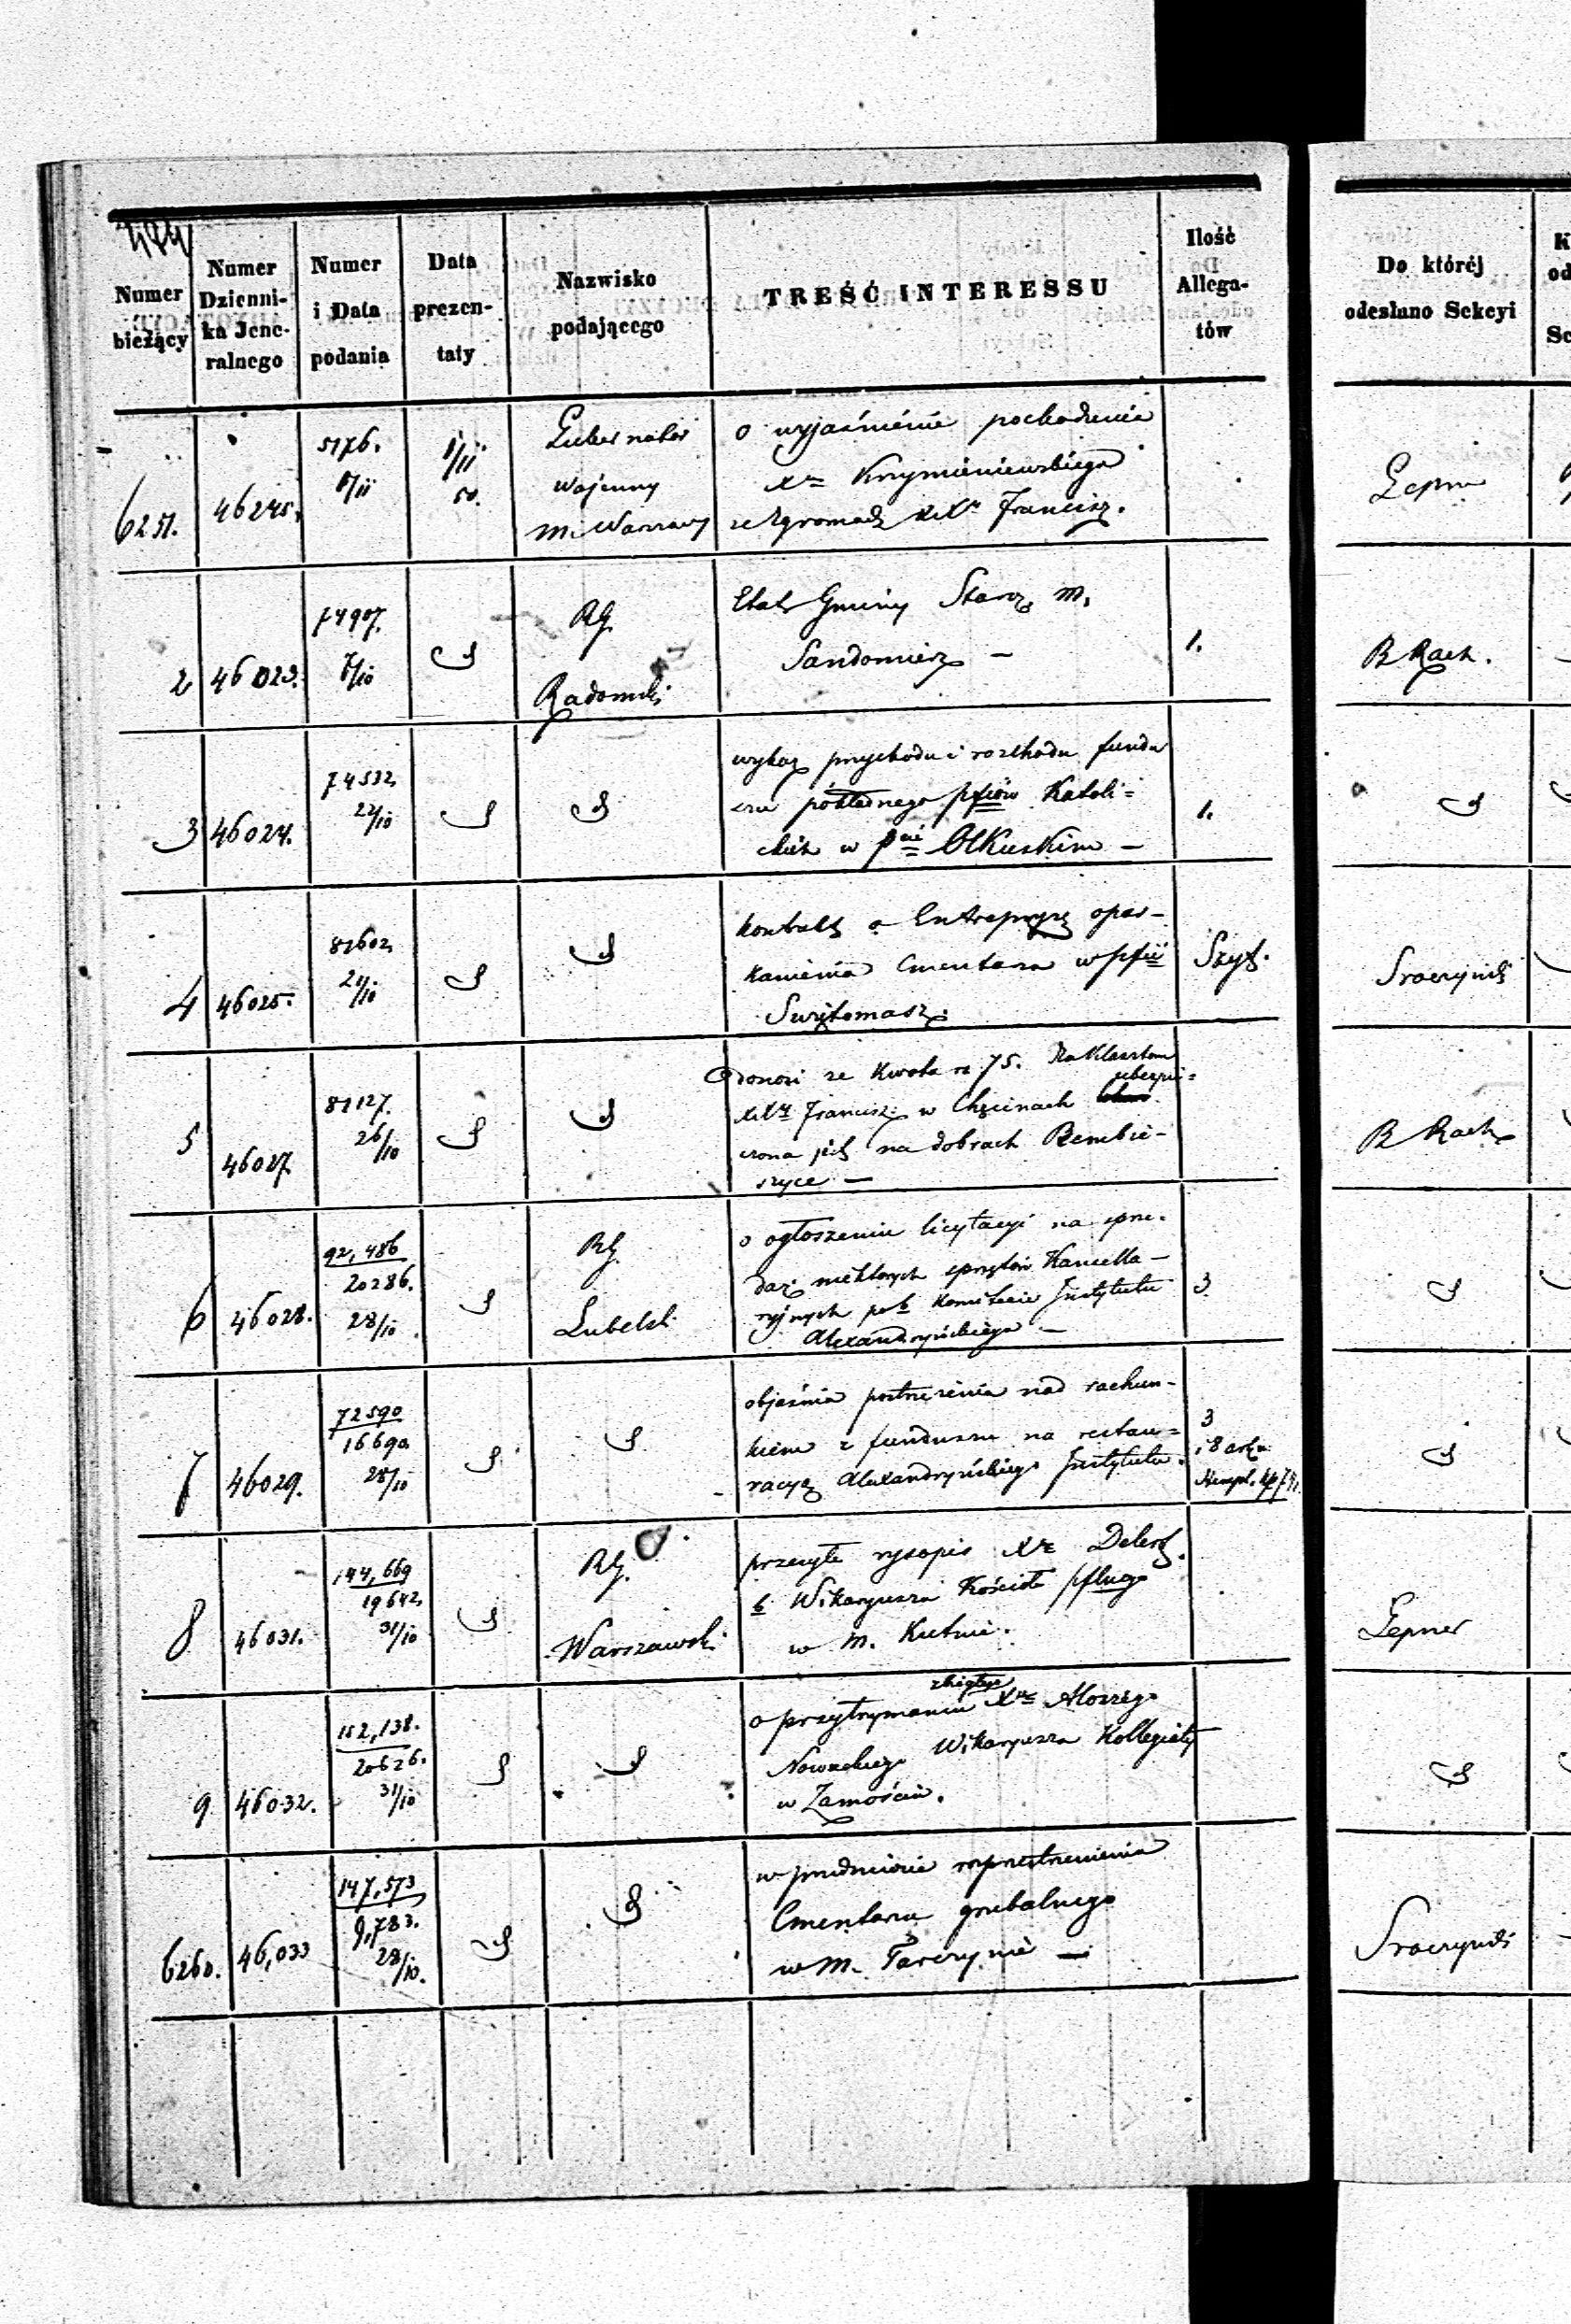 Numer bieżący
Numer Dzienni-
ka Jene-
ralnego
Numer i Data podania
Data prezen-
taty
Nazwisko podającego
TREŚĆ INTERESSU
Ilość Allega-
tów
Do któréj odesłano Sekcyi
6251. 46245. 5176. 1/11 50. Gubernator
Wojenny
M. Warszawy
o wyjaśnienie pochodzenia
Xa Krzymieniewskiego
ze Zgromadz XXw Francisz.
Lepner
2 46023. 74907. 7/10
RG
Radomski
Etat Gminy Staroz. m.
Sandomierz —
1.
B Rach.
3 46024. 74532 22/10
wykaz przychodu i rozchodu fundu
szu pokładnego pfiów Katoli=
ckich w pcie Olkuskim —
1.
4 46025. 82602 21/10
kontrakt o Entrepryzę opar-
kanienia Cmentarza w pfii
Świętomarz.
Szyt.
Sroczyński
5 46027. 81127. 26/10
donosi że kwota rs 75. dla Klasztoru
XXw Francisz. w Chęcinach ubezpie=
czona jest na dobrach Rembie-
szyce —
B Rach
6 46028. 92,486
20286. 28/10
RG
Lubelski
o ogłoszeniu licytacyi na sprze-
daż niektórych sprzętów Kancella-
ryjnych po b Komitecie Instytutu
Alexandryńskiego —
3
7 46029. 72590
16690. 28/10
objaśnia postrzeżenia nad rachun-
kiem z funduszu na restau=
racyą Alexandryńskiego Instytutu.
3
i 8 ark
8 46031. 144,669
19642. 31/10
RG.
Warszawski
przesyła rysopis Xa
b Wikaryusza Kościoła pflnego
w M. Kutnie.
Lepner
9 46032. 152,138.
20626. 31/10
zbiegłego
o przytrzymaniu Xa Alojzego
Nowackiego Wikaryusza Kollegiaty
w Zamościu.
6260. 46,033 147,573
9,783. 28/10.
w przedmiocie rozprzestrzenienia
Cmentarza grzebalnego
w M. Tarczynie —
Sroczyński